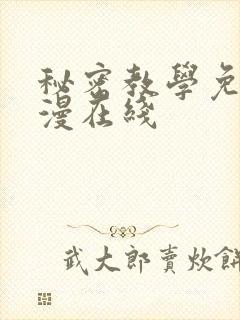 秘密教學免
漫在綫
武大郎賣炊餅